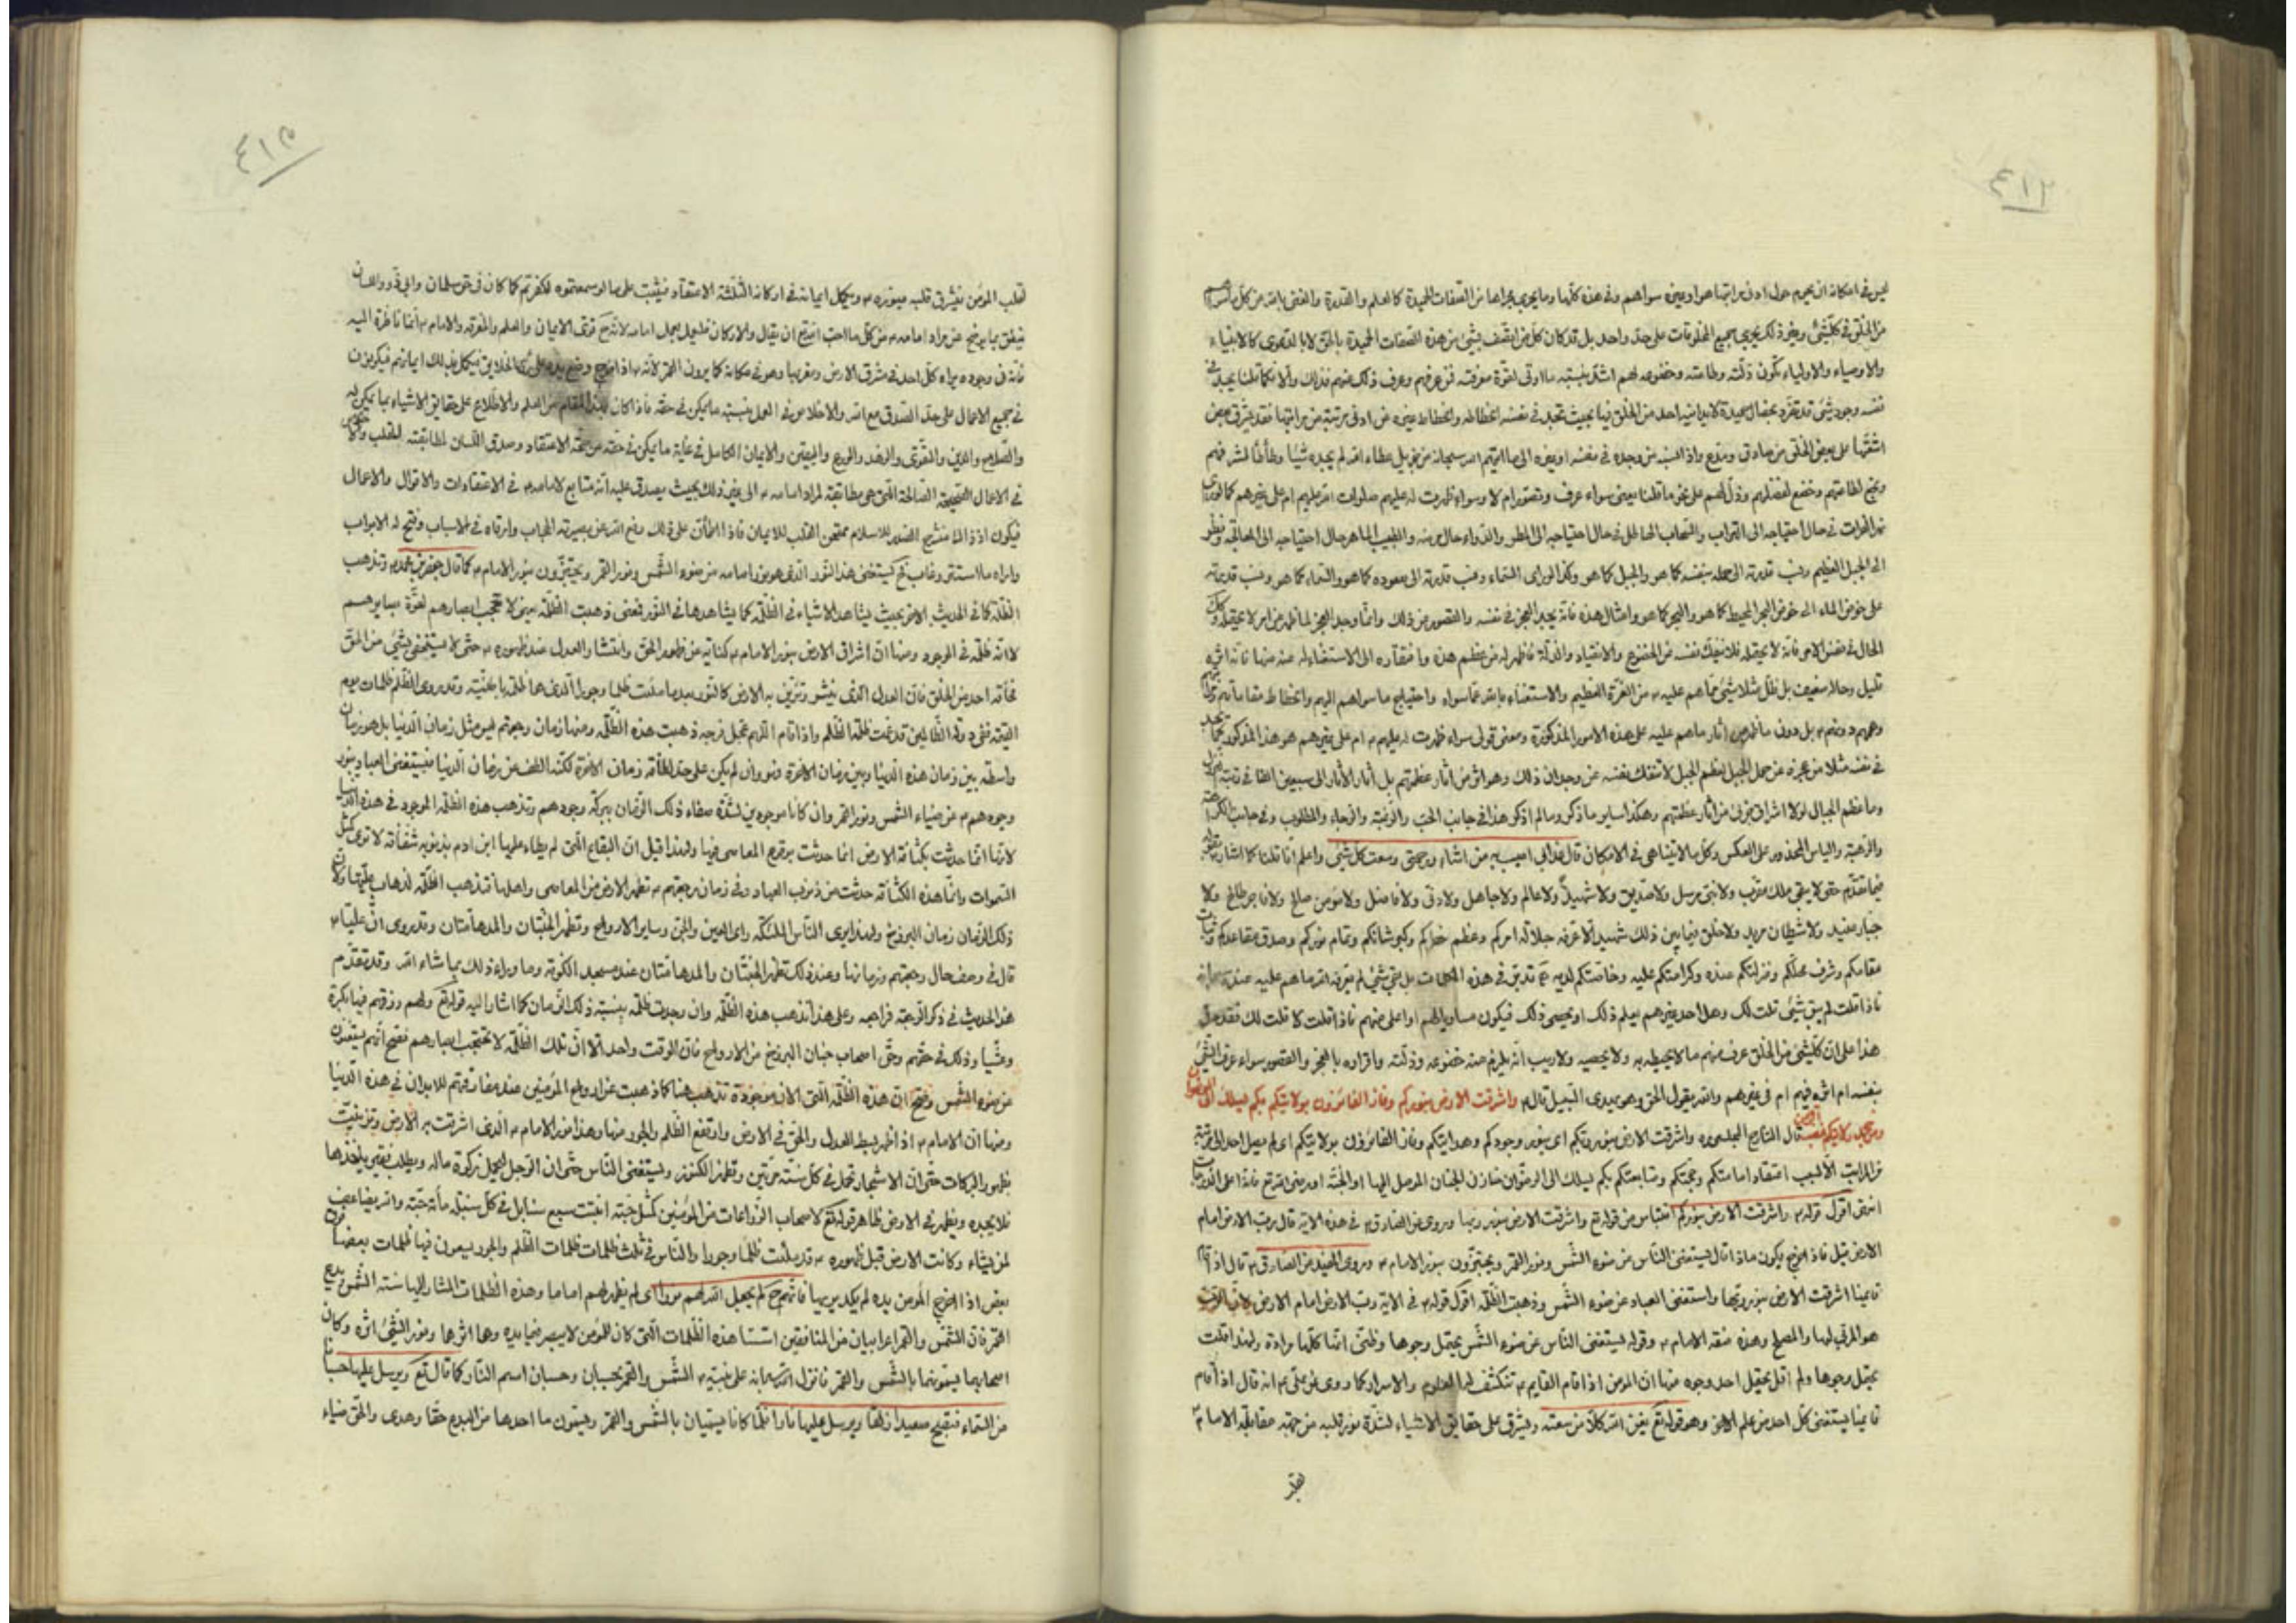 ٤١٢
ليس في امكانه ان يحوم حول ادنى مراتبها هو او غيره سواهم وفي هذه كلها وما يجري مجراها من الصفات الحميدة كالعلم والقدرة والغنى بالله من كل
من الخلق في كل شيء وغير ذلك يجري جميع المخلوقات على حد واحد بل قد كان كل من اتصف بشيء من هذه الصفات الحميدة بالحق لا بالدعوى كالانبياء
والاوصياء والاولياء تكون ذلته وطاعته وخضوعه لهم اشد بنسبة ما اوتى لقوة معرفته فمن عرفهم وعرف ذلك منهم فذلك والا فكما قلنا يجد في
نفسه وجود شيء قد تفرد بخصال حميدة لا يدانيه احد من الخلق فيها بحيث تجد في نفسه انحطاطه وانحطاط غيره عن ادنى مرتبة من مراتبها فقد يشرق بعض
اشعتها على بعض الخلق من صادق ومدع واذا لم من وجده في نفسه او غيره الى ما اتيهم الله سبحانه من جزيل عطاء الله لم يجده شيئا وطأطأ لشرفهم
وبخع لطاعتهم وخضع لفضلهم وذل لهم على نحو ما قلنا يعني سواء عرف وتصور ام لا وسواء ظهرت له عليهم صلوات الله عليهم ام على غيرهم كما لو رأى
نهر الفرات في حال احتياجه الى التراب والسحاب الهاطل في حال احتياجه الى المطر والدواء حال مرضه والطبيب الماهر حال احتياجه الى المعالجة ونظر
الى الجبل العظيم ونسب قدرته الى حمله بنفسه كما هو والجبل كما هو وكذا لو راى السماء ونسب قدرته الى صعوده كما هو والسماء كما هو ونسب قدرته
على خوض الماء الى خوض البحر المحيط كما هو والبحر كما هو وامثال هذه فانه يجد العجز في نفسه والقصور عن ذلك وانما وجد العجز لما ظهر من امر لا يحتمله
الحال في نفس الامر فانه لا يحتمله فلا تنفك نفسه عن الخضوع والانقياد والذلة فاظهر له من عظم هذه وافتقاره الى الاستغناء له عنه منها فانه اثر
قليل وحال ضعيف بل ظل مثلا شيء مما هم عليه من العزة العظيم والاستغناء بالله عما سواه واحتياج ما سواهم اليهم وانحطاط مقاماتهم
وهمهم دونهم بل دون ما ظهر من آثار ما هم عليه على هذه الامور المذكورة ومعنى قولي سواء ظهرت له عليهم ام على غيرهم هو هذا المذكور
في نفسه مثلا من عجزه عن حمل الجبل لعظم الجبل لا تنفك نفسه عن وجدان ذلك وهو اثر من آثار عظمتهم بل آثار الآثار الى سبعين الفا في رتبة
وما عظم الجبال لولا اشراق جزئي من آثار عظمتهم وهكذا ساير ما ذكر وما لم اذكر هذا في جانب الحب والرغبة والرجاء والمطلوب وفي جانب
والرهبة والياس المحذور على العكس وكل ما لا يتناهى في الامكان قال عذابي اصيب به من اشاء ورحمتي وسعت كل شيء واعلم انا قلنا كما اشار
فيما تقدم حتى لا يبقى ملك مقرب ولا نبي مرسل ولا صديق ولا شهيد ولا عالم ولا جاهل ولا دني ولا فاضل ولا مؤمن صالح ولا فاجر طالح ولا
جبار عنيد ولا شيطان مريد ولا خلق فيما بين ذلك شهيد الا عرفه جلالة امركم وعظم خطركم وكبر شانكم وتمام نوركم وصدق مقاعدكم وثبات
مقامكم وشرف محلكم ومنزلتكم عنده وكرامتكم عليه وخاصتكم لديه تدبر في هذه الكلمات هل بقي شيء لم يعرفه الله ما هم عليه عنده
فاذا قلت لم يبق شيء قلت لك وهل احد غيرهم يعلم ذلك او يحصى ذلك فيكون مساويا لهم او اعلى منهم فاذا قلت لا قلت لك فقد
هذا على ان كل شيء من الخلق عرف منهم ما لا يحيط به ولا يحصيه ولا ريب انه يلزم منه خضوعه وذلته واقراره بالعجز والقصور سواء عرف الشيء
بنفسه ام اثره فيهم ام في غيرهم والله يقول الحق وهو يهدي السبيل قال واشرقت الارض بنوركم وفاز الفائزون بولايتكم بكم يسلك الى الرضوان
وعلى من جحد ولايتكم غضب الرحمن قال الشارح المجلسي ره واشرقت الارض بنوركم اي بنور وجودكم وهدايتكم وفاز الفائزون بولايتكم اي لم يصل احد الى مرتبة
من المراتب الا بسبب اعتقاد امامتكم ومحبتكم ومتابعتكم بكم يسلك الى الرضوان خازن الجنان الموصل اليها او الجنة او رضى الله تع فانه اعلى الدرجات
انتهى اقول قوله واشرقت الارض بنوركم اقتباس من قوله تع واشرقت الارض بنور ربها وروى عن الصادق في هذه الاية قال رب الارض امام
الارض قيل فاذا خرج يكون ماذا قال يستغني الناس عن ضوء الشمس ونور القمر ويجتزون بنور الامام وروى المفيد عن الصادق قال اذا قام
قايمنا اشرقت الارض بنور ربها واستغنى العباد عن ضوء الشمس وذهبت الظلمة اقول قوله في الاية رب الارض امام الارض لان الرب
هو المربي لها والمصلح وهذه صفة الامام وقوله يستغني الناس عن ضوء الشمس يحتمل وجوها وظني انها كلها مرادة ولهذا قلت
يحتمل وجوها ولم اقل يحتمل احد وجوه منها ان المؤمن اذا قام القايم تنكشف له العلوم والاسرار كما روى عن علي انه قال اذا قام
قايمنا يستغني كل احد عن علم الاخر وهو قوله تع يغن الله كلا من سعته ويشرق على حقايق الاشياء لشدة نور قلبه من جهة مقابلة الامام
لقلب
٤١٣
لقلب المؤمن فيشرق قلبه بنوره ويكمل ايمانه في اركانه الثلثة الاعتقاد فيثبت على ما لو سمعتموه لكفرتم كما كان في حق سلمان وابي ذر واللسان
فينطق بما يترجح عن مراد امامه من كل ما احب الله ان يقال والاركان فيعمل بعمل امامه لانه ح قوى الايمان والعلم والمعرفة والامام انما ناظرة اليه
فانه في وجوده يراه كل احد في مشرق الارض ومغربها وهو في مكانه كما يرون القمر لانه اذا خرج وضع يده على رؤس الخلايق فيكمل بذلك ايمانهم فيكونون
في جميع الاعمال على حد الصدق مع الله والاخلاص في العمل بنسبة ما يمكن في حقه فاذا كان بهذا المقام من العلم والاطلاع على حقايق الاشياء بما يمكن له
والصلاح والدين والتقوى والزهد والورع واليقين والايمان الكامل في غاية ما يمكن في حقه من صحة الاعتقاد وصدق اللسان لمطابقته للقلب
في الاعمال الصحيحة الصالحة التي هي مطابقة لمراد امامه الى غير ذلك بحيث يصدق عليه انه متابع لامامه في الاعتقادات والاقوال والاعمال
فيكون اذ ذاك منشرح الصدر للاسلام ممتحن القلب للايمان فاذا اطمأن على ذلك رفع الله عن بصيرته الحجاب وارقاه في الاسباب وفتح له الابواب
واراه ما استتر وغاب فح يستغني هذا النور الذي هو نور امامه عن ضوء الشمس ونور القمر ويجتزون بنور الامام كما قال جعفر بن محمد وتذهب
الظلمة كما في الحديث الاخر بحيث يشاهد الاشياء في الظلمة كما يشاهدها في النور فمعنى ذهبت الظلمة يعني لا تحجب ابصارهم لقوة بصايرهم
لا انه ظلمة في الوجود ومنها ان اشراق الارض بنور الامام كناية عن ظهور الحق وانتشار العدل عند ظهوره حتى لا يستخفي بشيء من الحق
مخافة احد من الخلق فان العدل الذي ينشر وتزين به الارض كالنور بعد ما ملئت ظلما وجورا الذي هما ظلمة باعنته وقد روى الظلم ظلمات يوم
القيمة ففي دولة الظالمين قد عمت ظلمة الظلم واذا قام اللهم عجل فرجه ذهبت هذه الظلمة ومنها زمان رجعتهم ليس مثل زمان الدنيا بل هو زمان
واسطة بين زمان هذه الدنيا وبين زمان الاخرة وهو وان لم يكن على حد لطافة زمان الاخرة لكنه الطف من زمان الدنيا فيستغني العباد بنور
وجوههم عن ضياء الشمس ونور القمر وان كانا موجودين لشدة صفاء ذلك الزمان ببركة وجودهم وتذهب هذه الظلمة الموجود في هذه الدنيا
لانها انما حدثت بكثافة الارض انما حدثت بوقوع المعاصي فيها ولهذا قيل ان البقاع التي لم يطاء عليها ابن ادم بذنوبه شفافة لا ترى كمثل
السموات وانما هذه الكثافة حدثت من ذنوب العباد وفي زمان رجعتهم تطهر الارض من المعاصي واهلها فتذهب الظلمة لذهاب علتها ولان
ذلك الزمان زمان البرزخ ولهذا يرى الناس الملئكة راى العين والجن وساير الارواح وتظهر الجنتان والمدهامتان وقد روى ان عليا
قال في وصف حال رجعتهم وزمانها وعند ذلك تظهر الجنتان والمدهامتان عند مسجد الكوفة وما وراء ذلك بما شاء الله وقد تقدم
هذا الحديث في ذكر الرجعة فراجعه وعلى هذا تذهب هذه الظلمة وان وجدت ظلمة بنسبة ذلك الزمان كما اشار اليه قوله تع ولهم رزقهم فيها بكرة
وعشيا وذلك في حقهم وحق اصحاب جنان البرزخ من الارواح فان الوقت واحد الا ان تلك الظلمة لا تحجب ابصارهم فصح انهم يستغنون
عن ضوء الشمس وصح ان هذه الظلمة التي الان موجودة تذهب هنا كما ذهبت عن ارواح المؤمنين عند مفارقتهم للابدان في هذه الدنيا
ومنها ان الامام اذا ظهر بسط العدل والحق في الارض وارتفع الظلم والجور منها وهذا نور الامام الذي اشرقت به الارض وتزينت
بظهور البركات حتى ان الاشجار تحمل في كل سنة مرتين وتظهر الكنوز ويستغني الناس حتى ان الرجل ليحمل زكوة ماله ويطلب فقيرا ياخذها
فلا يجده ويظهر في الارض ظاهر قوله تع لاصحاب الزراعات من المؤمنين كمثل حبة انبتت سبع سنابل في كل سنبلة مأة حبة والله يضاعف
لمن يشاء وكانت الارض قبل ظهوره قد ملئت ظلما وجورا والناس في ثلث ظلمات ظلمات الظلم والجور يعمون فيها ظلمات بعضها فوق
بعض اذا اخرج المؤمن يده لم يكد يريها فانهم ح لم يجعل الله لهم نورا اي لم يظهر لهم اماما وهذه الظلمات المشار اليها سنة الشمس بدع
القمر فان الشمس والقمر اعرابيان من المنافقين اسسا هذه الظلمات التي كان المؤمن لا يبصر فيها يده وهما اثرهما ونور الشيء اثره وكان
اصحابهما يسمونهما بالشمس والقمر فانزل الله سبحانه على نبيه الشمس والقمر بحسبان وحسبان اسم النار كما قال تع ويرسل عليها حسبانا
من السماء فتصبح صعيدا زلقا ويرسل عليها نارا فلما كانا يسميان بالشمس والقمر ويسمون ما احدها من البدع حقا وهدى والحق ضياء